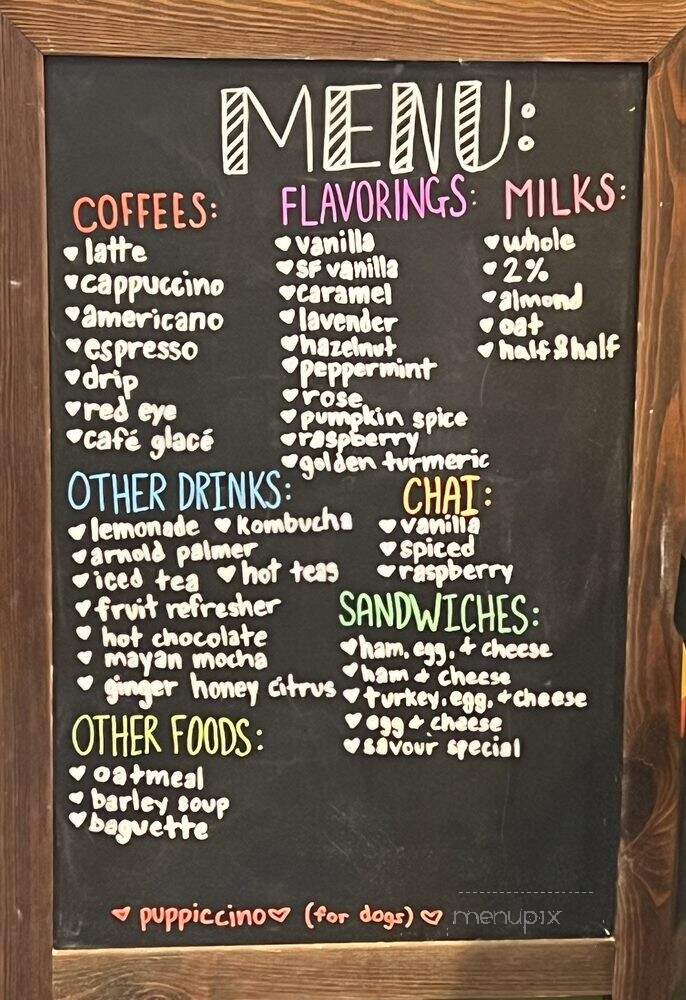 MENU:
COFFEES:
latte
cappuccino
americano
espresso
drip
red eye
café glacé
FLAVORINGS:
vanilla
sf vanilla
caramel
lavender
hazelnut
peppermint
rose
pumpkin spice
raspberry
golden turmeric
MILKS:
whole
2%
almond
oat
half & half
OTHER DRINKS:
lemonade kombucha
arnold palmer
iced tea hot teas
fruit refresher
hot chocolate
mayan mocha
ginger honey citrus
CHAI:
vanilla
spiced
raspberry
SANDWICHES:
ham, egg, + cheese
ham + cheese
turkey, egg, + cheese
egg + cheese
savour special
OTHER FOODS:
oatmeal
barley soup
baguette
puppiccino (for dogs)
menupix